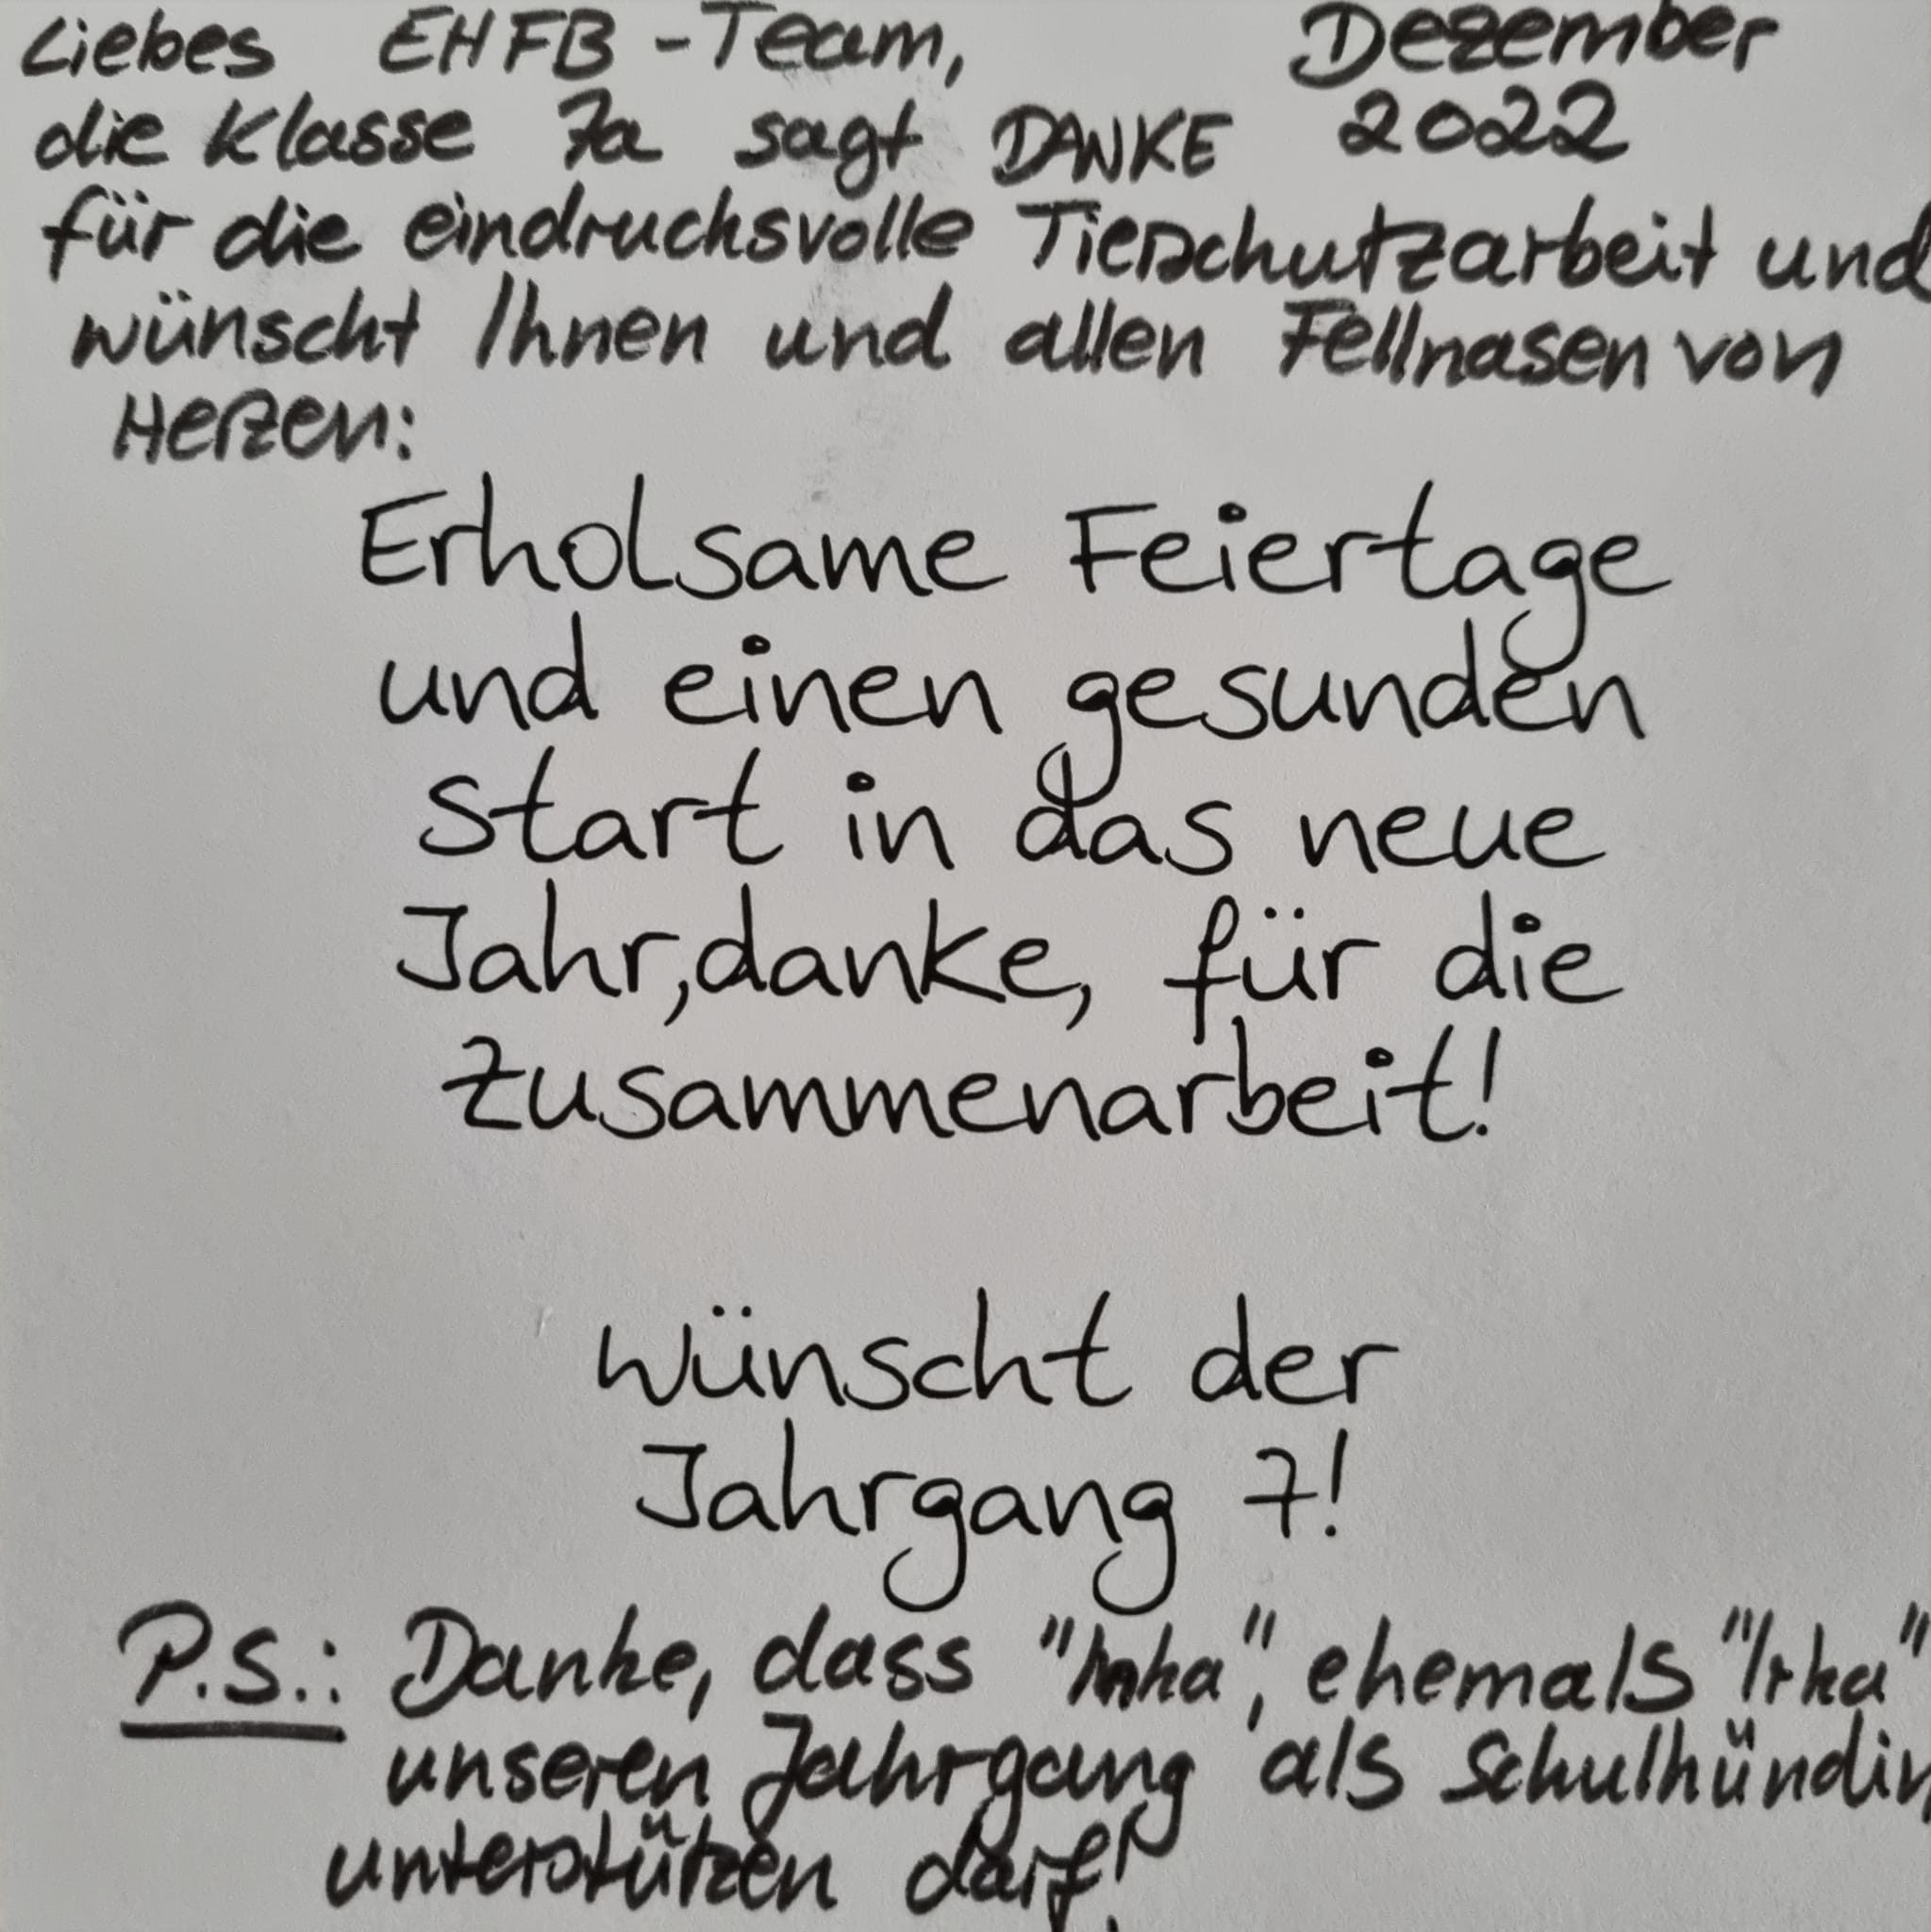 Liebes EHFB-Team, Dezember
die Klasse 7a sagt DANKE 2022
für die eindrucksvolle Tierschutzarbeit und
wünscht Ihnen und allen Fellnasen von
Herzen:
Erholsame Feiertage
und einen gesunden
Start in das neue
Jahr, danke, für die
Zusammenarbeit!
Wünscht der
Jahrgang 7!
P.S.: Danke, dass "Inka", ehemals "Irka"
unseren Jahrgang als Schulhündin
unterstützen darf!